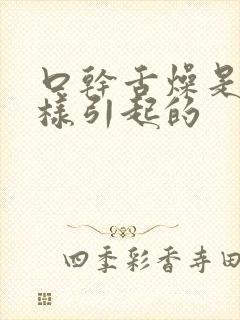 口幹舌燥是
樣引起的
四季彩香寺田